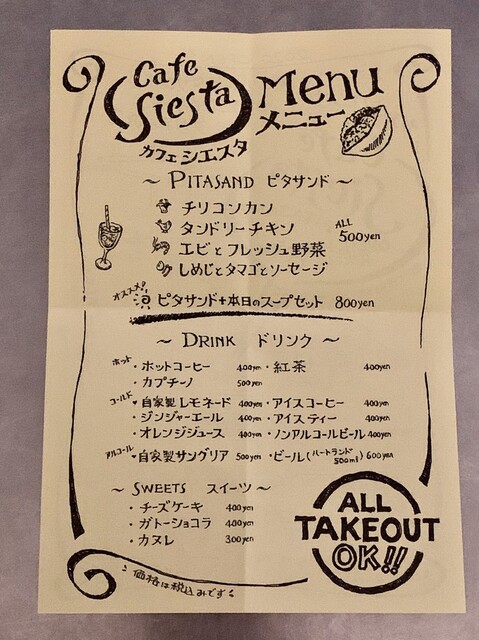 Cafe Siesta
カフェ シエスタ
Menu
メニュー
～ PITASAND ピタサンド ～
チリコンカン
タンドリーチキン
エビとフレッシュ野菜
しめじとタマゴとソーセージ
ALL 500yen
オススメ!
ピタサンド+本日のスープセット 800yen
～ DRINK ドリンク ～
ホット ・ホットコーヒー 400yen ・紅茶 400yen
・カプチーノ 500yen
コールド ♥自家製レモネード 400yen ・アイスコーヒー 400yen
・ジンジャーエール 400yen ・アイスティー 400yen
・オレンジジュース 400yen ・ノンアルコールビール 400yen
アルコール ♥自家製サングリア 500yen ・ビール(ハートランド 500ml) 600yen
～ SWEETS スイーツ ～
・チーズケーキ 400yen
・ガトーショコラ 400yen
・カヌレ 300yen
ALL
TAKEOUT
OK!!
価格は税込みです